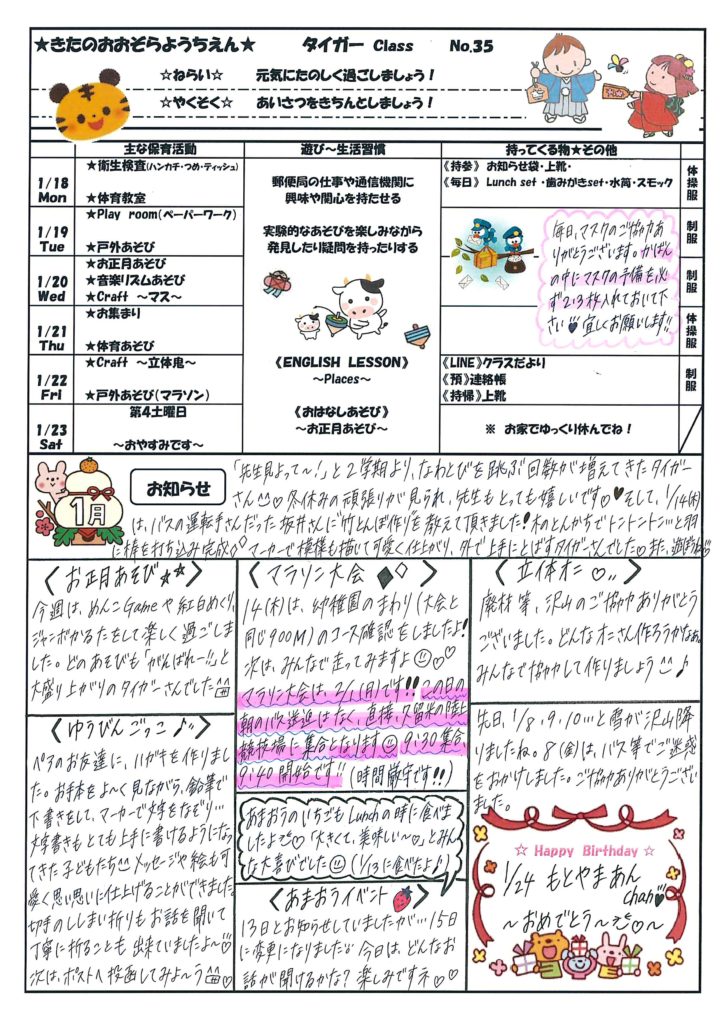 ★きたのおおぞらようちえん★ タイガー Class No.35
☆ねらい☆ 元気にたのしく過ごしましょう！
☆やくそく☆ あいさつをきちんとしましょう！
主な保育活動 遊び～生活習慣 持ってくる物★その他
1/18
Mon
★衛生検査(ハンカチ・つめ・ティッシュ)
★体育教室
1/19
Tue
★Play room(ペーパーワーク)
★戸外あそび
1/20
Wed
★お正月あそび
★音楽リズムあそび
★Craft ～マス～
1/21
Thu
★お集まり
★体育あそび
1/22
Fri
★Craft ～立体鬼～
★戸外あそび(マラソン)
1/23
Sat
第4土曜日
～おやすみです～
郵便局の仕事や通信機関に
興味や関心を持たせる
実験的なあそびを楽しみながら
発見したり疑問を持ったりする
《ENGLISH LESSON》
～Places～
《おはなしあそび》
～お正月あそび～
《持参》 お知らせ袋・上靴・
《毎日》 Lunch set ・歯みがきset・水筒・スモック
毎日、マスクのご協力あ
りがとうございます。かばん
の中にマスクの予備を必
ず2・3枚入れておいて下
さい♥宜しくお願いします!!
《LINE》クラスだより
《預》連絡帳
《持帰》上靴
※ お家でゆっくり休んでね！
体操服
制服
制服
体操服
制服
1月
お知らせ
「先生見よって～!」と2学期より、なわとびを跳ぶ回数が増えてきたタイガー
さん 冬休みの頑張りが見られ、先生もとっても嬉しいです♡♥そして、1/14(木)
は、バスの運転手さんだった坂井さんに"竹とんぼ作り"を教えて頂きました!木のとんかちでトントントン…と羽
に棒を打ち込み完成◇マーカーで模様も描いて可愛く仕上がり、外で上手にとばすタイガーさんでした♡また、遊ぼうね
〈お正月あそび★★〉
今週は、めんこGameや紅白めくり、
ジャンボかるたをして楽しく過ごしま
した。どのあそびも「がんばれー!!」と
大盛り上がりのタイガーさんでした
〈ゆうびんごっこ♪〉
ペアのお友達に、ハガキを作りまし
た。お手本をよ～く見ながら、鉛筆で
下書きをして、マーカーで文字をなぞり…
文字書きもとても上手に書けるようになっ
てきた子どもたち メッセージや絵も可
愛く思い思いに仕上げることができました
切手のししまい折りもお話を聞いて
丁寧に折ることも出来ていましたよ～♡
次は、ポストへ投函してみよ～う
〈マラソン大会◆◇〉
14(木)は、幼稚園のまわり(大会と
同じ900M)のコース確認をしましたよ!
次は、みんなで走ってみますよ♡♡
マラソン大会は、2/1(月)です!! この日の
朝のバス送迎はなく、直接、久留米の陸上
競技場に集合となります 9:30集合、
9:40開始です!! (時間厳守です!!)
あまおうのいちごもLunchの時に食べま
したよ♡「大きくて、美味しい～♡」とみん
な大喜びでした(1/13に食べたよ♪)
〈あまおうイベント〉
13日とお知らせしていましたが…15日
に変更になりました 今日は、どんなお
話が聞けるかな？楽しみですネ♡♡
〈立体オニ♡〉
廃材等、沢山のご協力ありがとう
ございました。どんなオニさん作ろうかなぁ
みんなで協力して作りましょう♪
先日、1/8、9、10…と雪が沢山降
りましたね。8(金)は、バス等でご迷惑
をおかけしました。ご協力ありがとうござい
ました。
☆ Happy Birthday ☆
1/24 もとやまあん
chan
～おめでとう～♡～